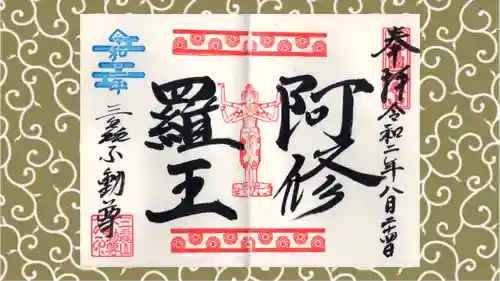 奉拝
令和二年八月二十四日
阿修
羅王
令和二年
三瀧不動尊